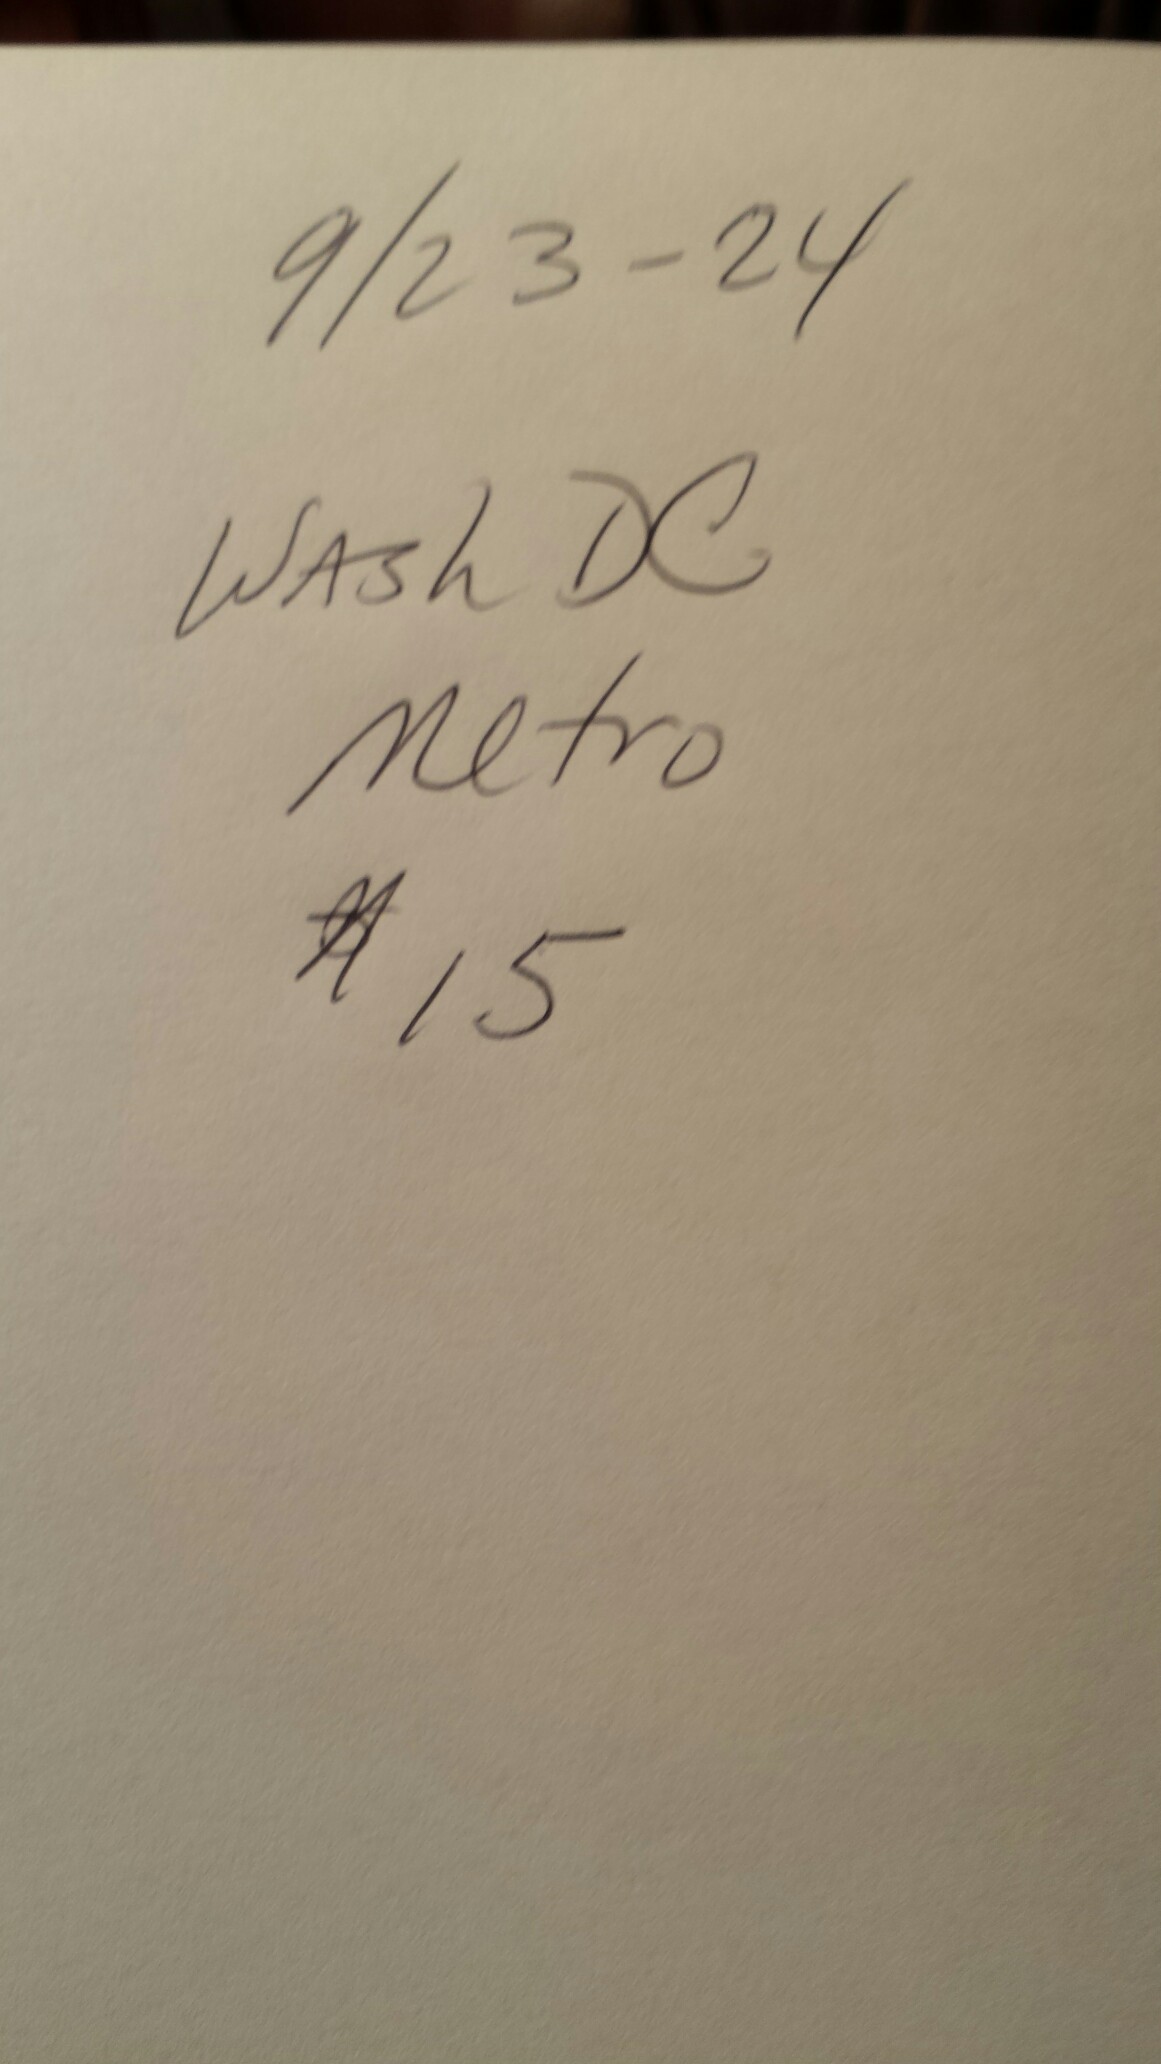 9/23-24
WASh DC
Metro
$15